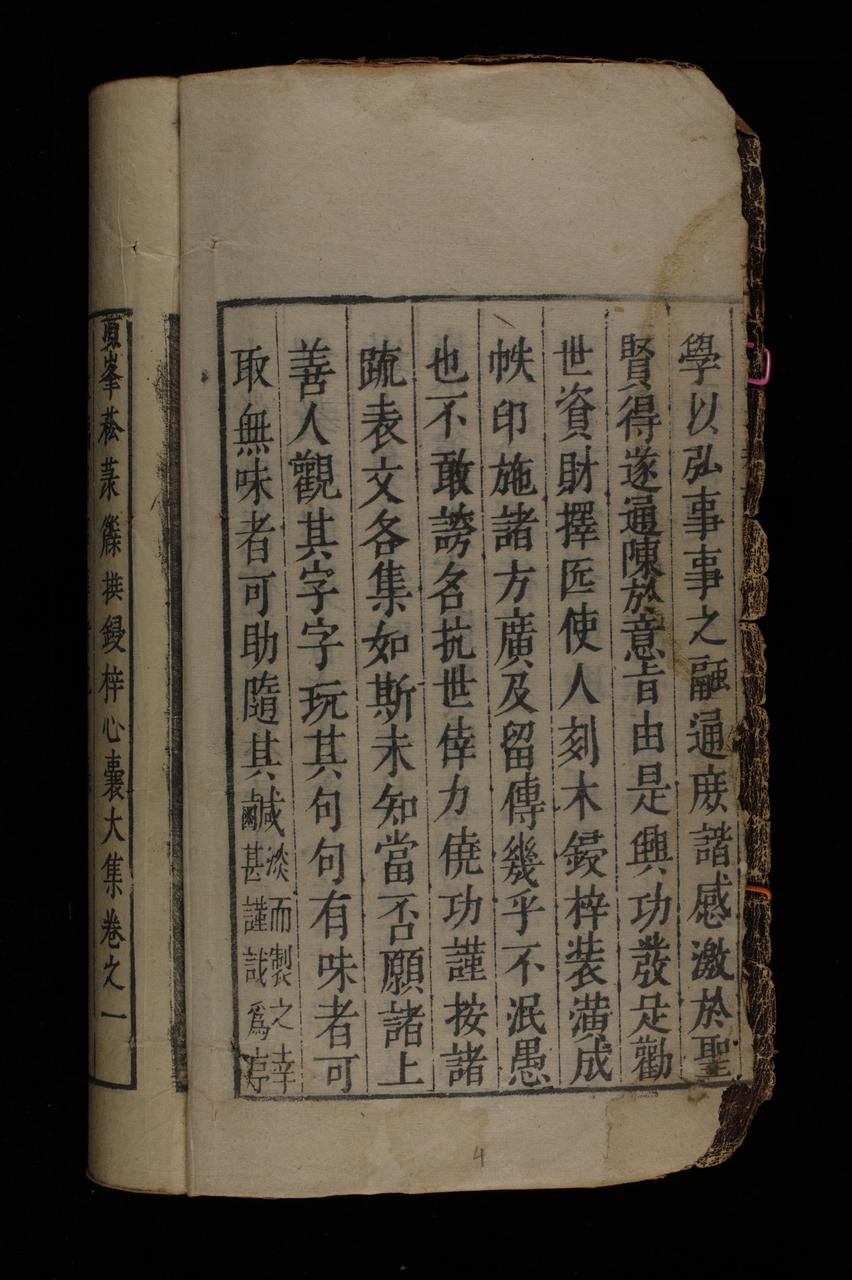 學以弘事事之融通庻諧感激於聖
賢得遂通陳於意旨由是興功發足勸
世資財擇匠使人刻木鋟梓裝潢成
帙印施諸方廣及留傳幾乎不泯愚
也不敢誇名抗世倖力僥功謹按諸
䟽表文各集如斯未知當否願諸上
善人觀其字字玩其句句有味者可
取無味者可助隨其鹹淡而製之幸
甚謹誌爲序
峯菘菉篠撰鋟梓心囊大集卷之一
4